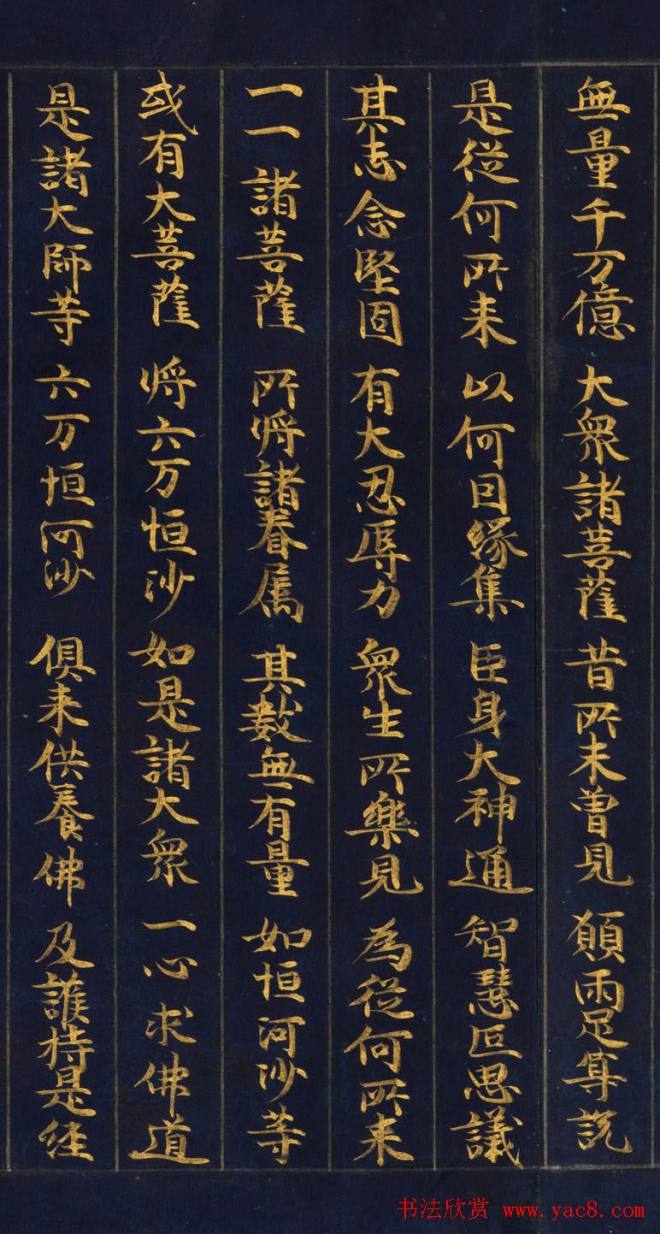 無量千万億 大衆諸菩薩 昔所未曾見 願兩足尊説
是從何所来 以何因縁集 巨身大神通 智慧叵思議
其志念堅固 有大忍辱力 衆生所樂見 為從何所来
一一諸菩薩 所将諸眷属 其數無有量 如恒河沙等
或有大菩薩 将六万恒沙 如是諸大衆 一心求佛道
是諸大師等 六万恒河沙 俱来供養佛 及護持是経
书法欣赏 www.yac8.com